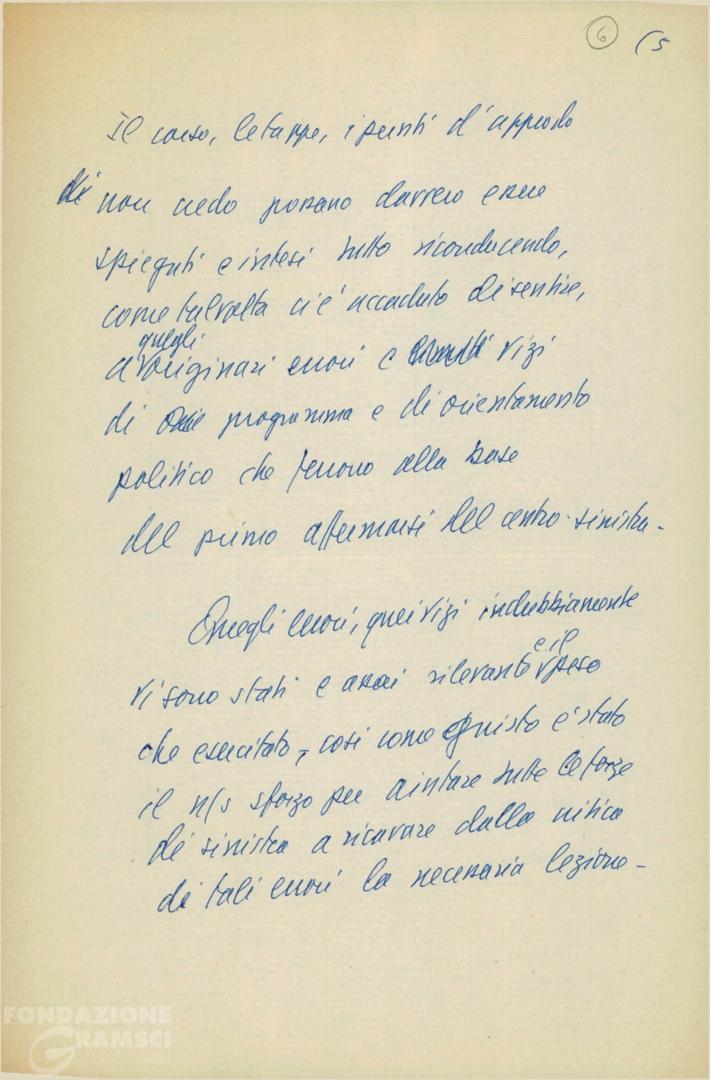 6 (5
Il corso, le tappe, i punti d'approdo
di non credo possano davvero essere
spiegati e intesi tutto riconducendo,
come talvolta ci è accaduto di sentire,
quegli
a originari errori e vizi
di programma e di orientamento
politico che furono alla base
del primo affermarsi del centro-sinistra -
Quegli errori, quei vizi indubbiamente
e il
vi sono stati e assai rilevante peso
che esercitato, così come giusto è stato
il n/s sforzo per aiutare tutte le forze
di sinistra a ricavare dalla critica
di tali errori la necessaria lezione -
FONDAZIONE
GRAMSCI